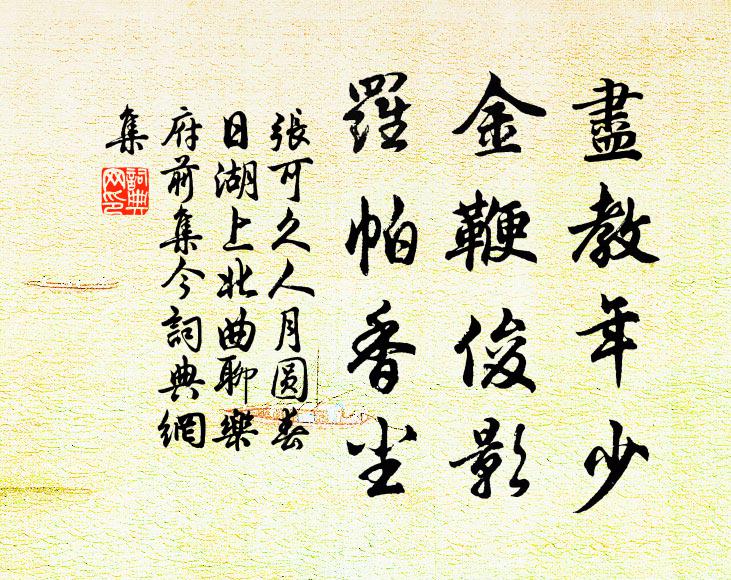 盡教年少
金鞭俊影
羅帕香尘
張可久人月圆春
日湖上北曲聊樂
府前集今詞典網
集
詞典網印